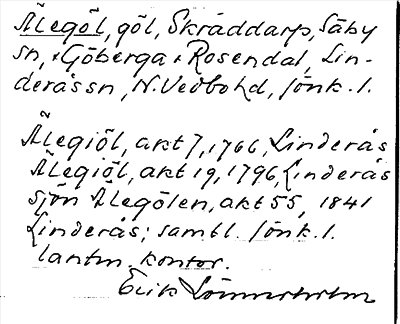 Älegöl, göl, Skräddarp, Säby
sn, + Göberga + Rosendal, Lin-
deråssn, N. Vedbo hd, Jönk. l.
Älegiöl, akt 7, 1766, Linderås
Älegiöl, akt 19, 1796, Linderås
sjön Älegölen, akt 55, 1841
Linderås; samtl. Jönk. l.
lantm. kontor.
Erik